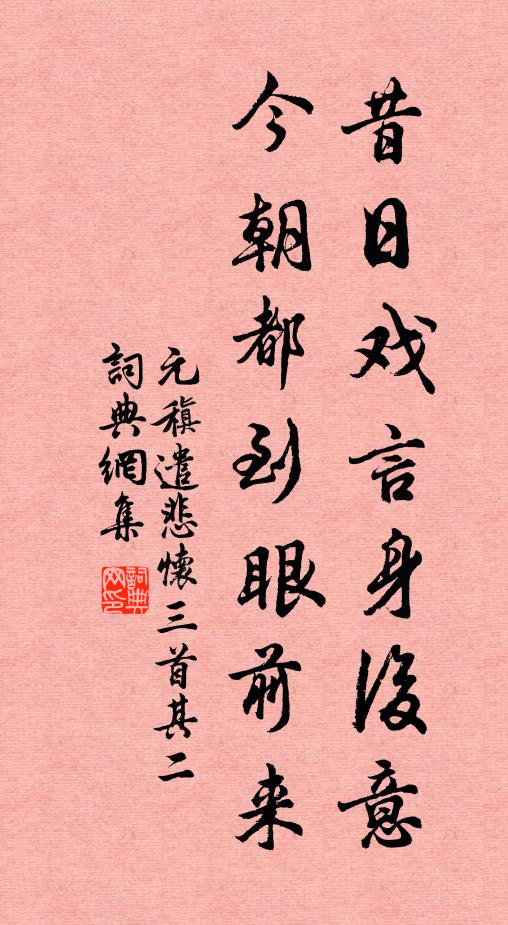 昔日戏言身後意
今朝都到眼前来
元稹遣悲懷三首其二
詞典網集
詞典网印